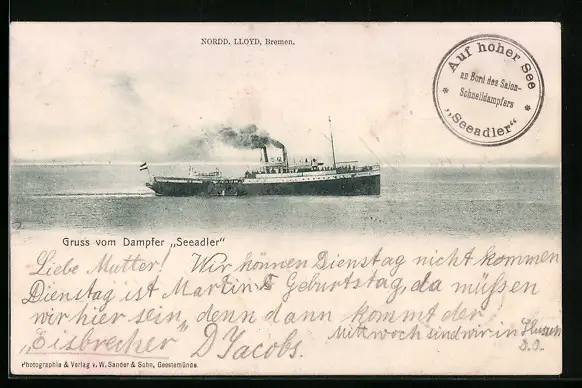 NORDD. LLOYD, Bremen.
Auf hoher See
an Bord des Salon-
Schnelldampfers
„Seeadler“
Gruss vom Dampfer „Seeadler“
Liebe Mutter! Wir können Dienstag nicht kommen
Dienstag ist Martins Geburtstag, da müßen
wir hier sein, denn dann kommt der
„Eisbrecher“ D Jacobs.
Mittwoch sind wir in
Photographie & Verlag v. W. Sander & Sohn, Geestemünde.